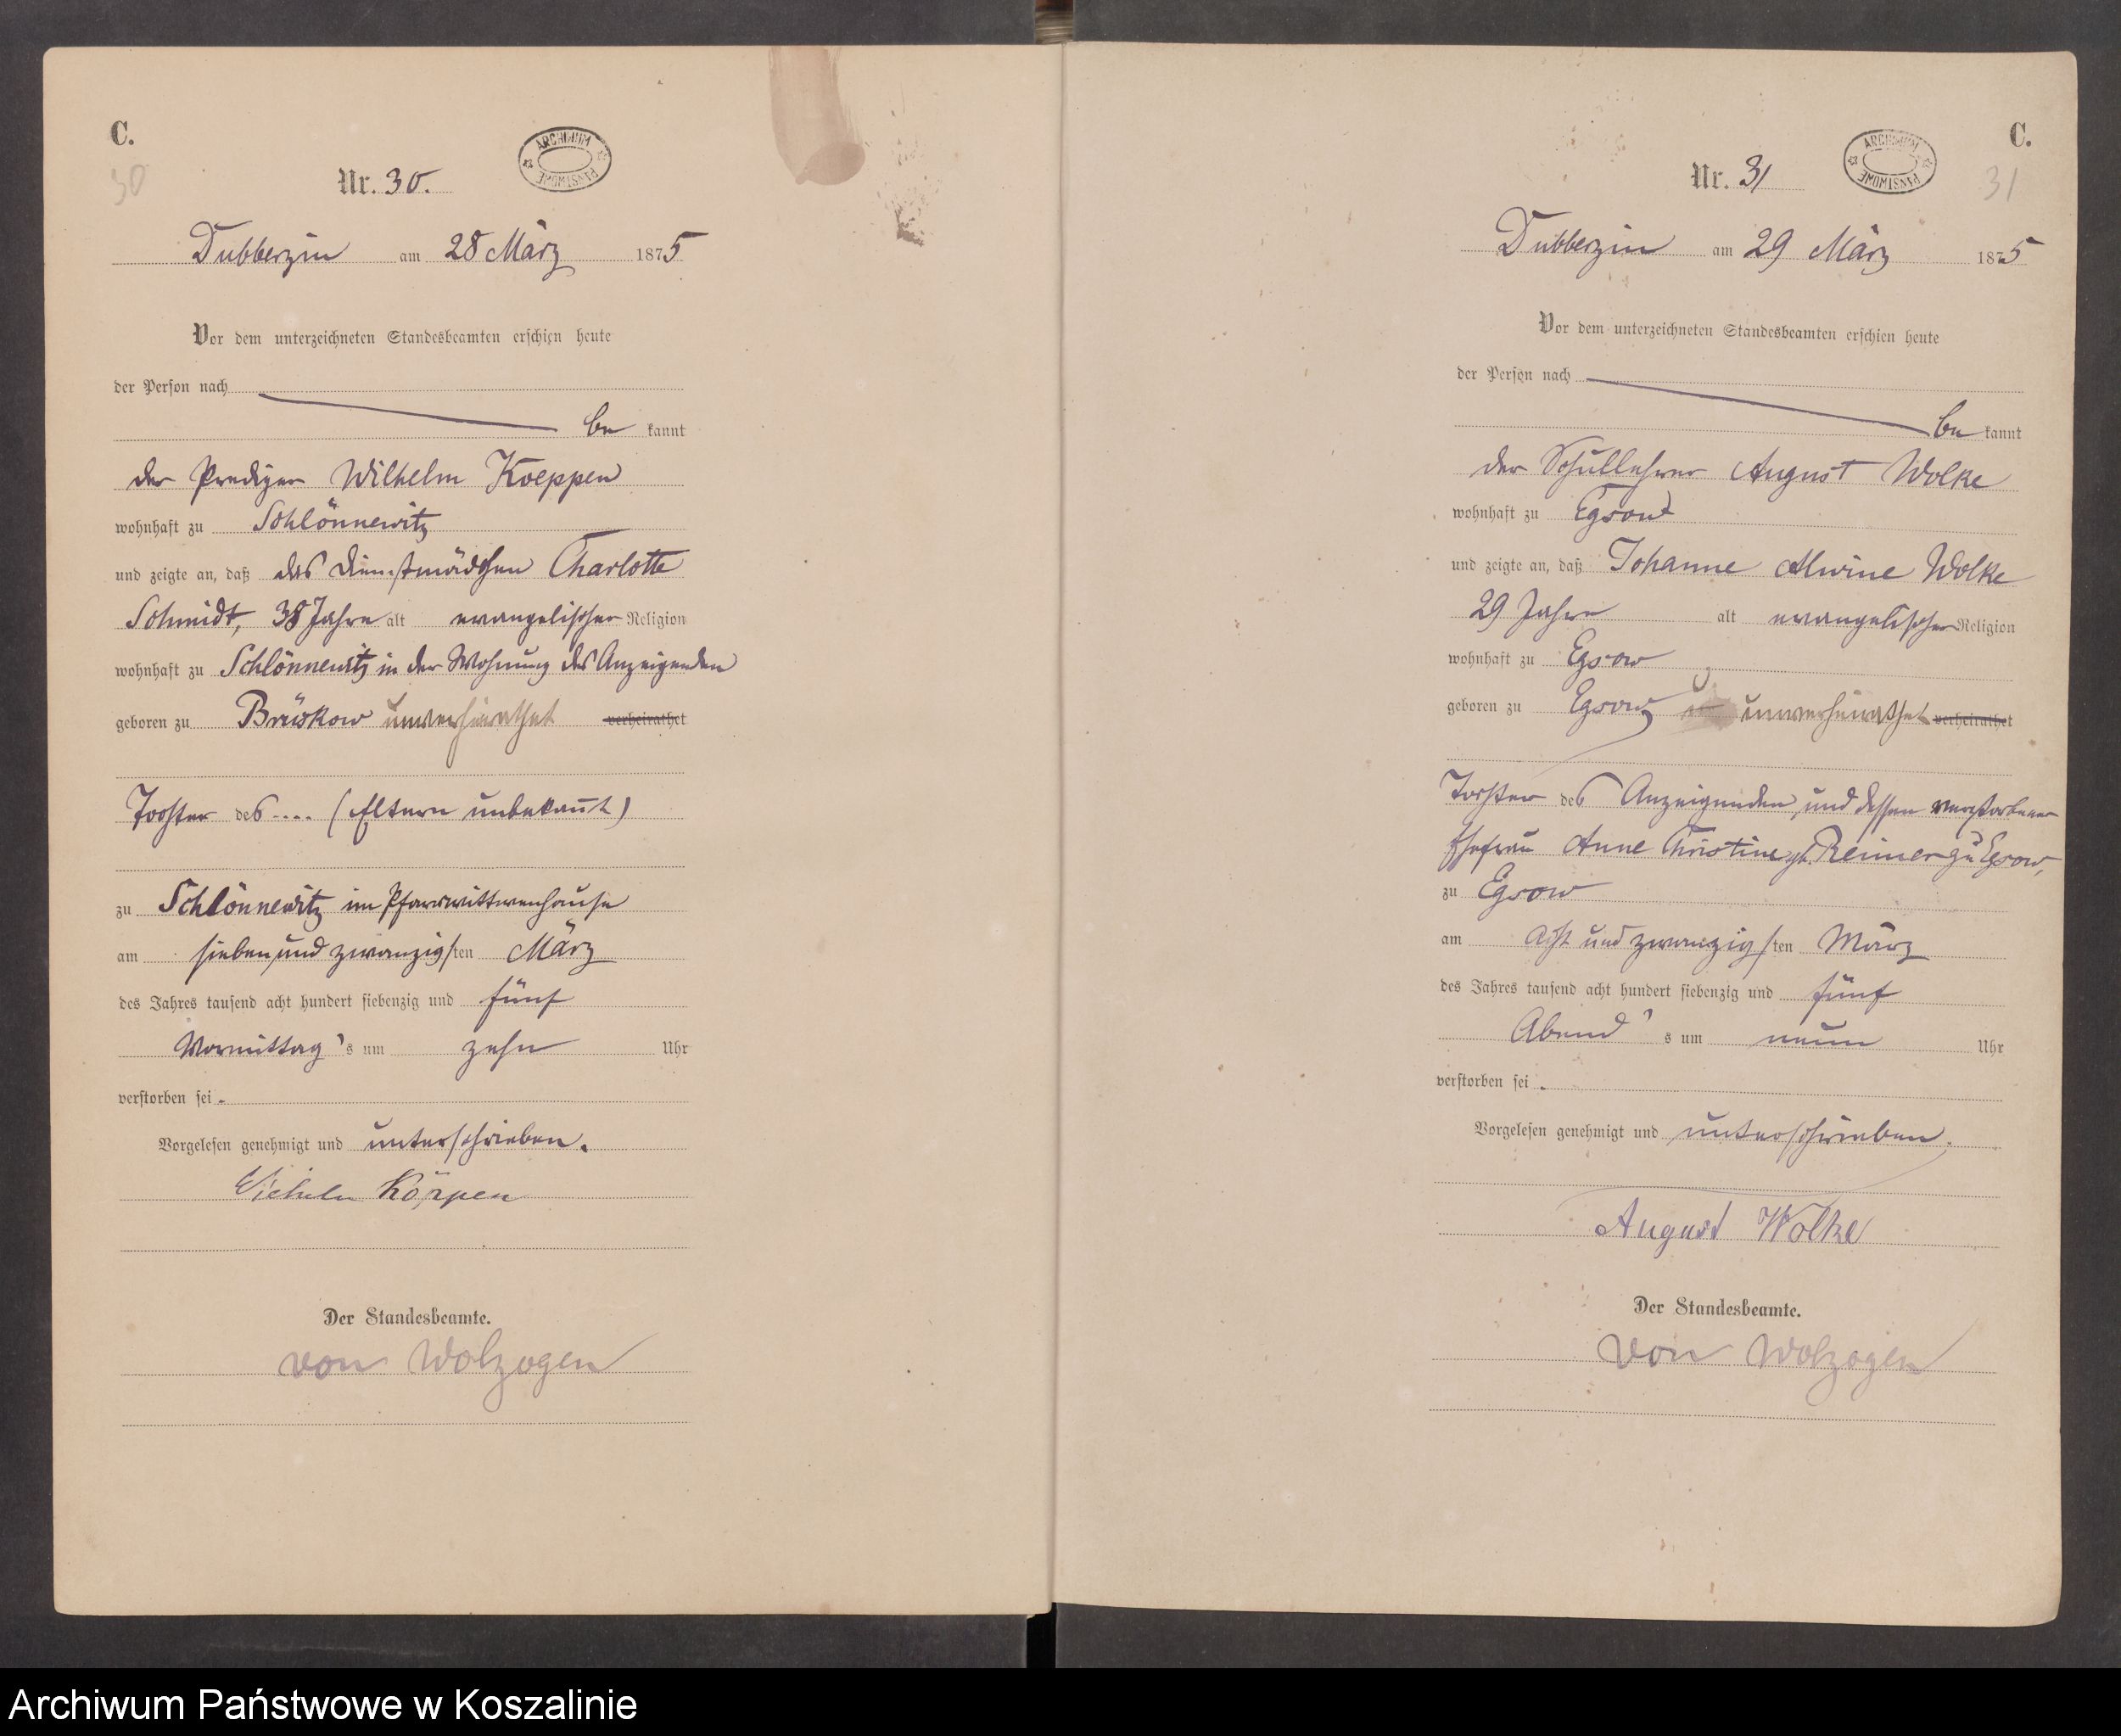 C.
30
Nr. 30.
ARCHIWUM PAŃSTWOWE
Dubberzin am 28 März 1875
Vor dem unterzeichneten Standesbeamten erschien heute
der Person nach
be kannt
der Prediger Wilhelm Koeppen
wohnhaft zu Schlönnewitz
und zeigte an, daß das Dienstmädchen Charlotte
Schmidt, 38 Jahre alt evangelischer Religion
wohnhaft zu Schlönnewitz in der Wohnung des Anzeigenden
geboren zu Brüskow unverheirathet verheirathet
Tochter des .... (Eltern unbekannt)
zu Schlönnewitz im Pfarrwittwenhause
am sieben und zwanzigsten März
des Jahres tausend acht hundert siebenzig und fünf
Vormittag's um zehn Uhr
verstorben sei.
Vorgelesen genehmigt und unterschrieben.
Köppen
Der Standesbeamte.
von Wolzogen
C.
31
Nr. 31
ARCHIWUM PAŃSTWOWE
Dubberzin am 29 März 1875
Vor dem unterzeichneten Standesbeamten erschien heute
der Person nach
be kannt
der Schullehrer August Wolke
wohnhaft zu Egsow
und zeigte an, daß Johanne Alwine Wolke
29 Jahre alt evangelischer Religion
wohnhaft zu Egsow
geboren zu Egsow unverheirathet verheirathet
Tochter des Anzeigenden, und dessen verstorbener
Ehefrau Anne Christine geb. Reimer zu Egsow,
zu Egsow
am acht und zwanzigsten März
des Jahres tausend acht hundert siebenzig und fünf
Abend's um neun Uhr
verstorben sei.
Vorgelesen genehmigt und unterschrieben.
August Wolke
Der Standesbeamte.
von Wolzogen
Archiwum Państwowe w Koszalinie